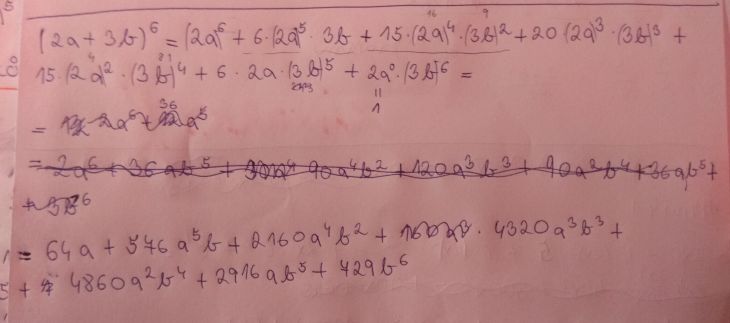 (2a + 3b)^6 = (2a)^6 + 6·(2a)^5 · 3b + 15·(2a)^4·(3b)^2 + 20(2a)^3·(3b)^3 +
15·(2a)^2·(3b)^4 + 6·2a·(3b)^5 + 2a^0·(3b)^6 =
1
= 2a^6 + 36 a^5
= 2a^6 + 36ab^5 + 90a^4b^2 + 120a^3b^3 + 90a^2b^4 + 36ab^5 +
+ 3b^6
= 64a + 576a^5b + 2160a^4b^2 + · 4320a^3b^3 +
+ 4860a^2b^4 + 2916ab^5 + 729b^6